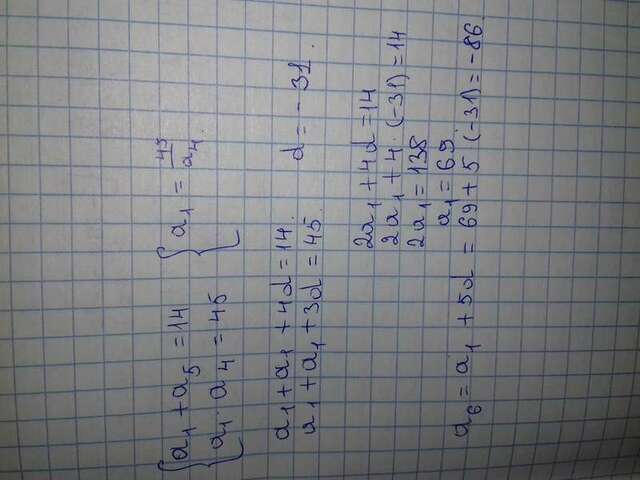 a₁ + a₅ = 14
a₁ · a₄ = 45
a₁ = 45/a₄
a₁ + a₁ + 4d = 14.
a₁ + a₁ + 3d = 45.
d = - 31.
2a₁ + 4d = 14
2a₁ + 4 · (-31) = 14
2a₁ = 138
a₁ = 69.
a₆ = a₁ + 5d = 69 + 5 (-31) = -86.